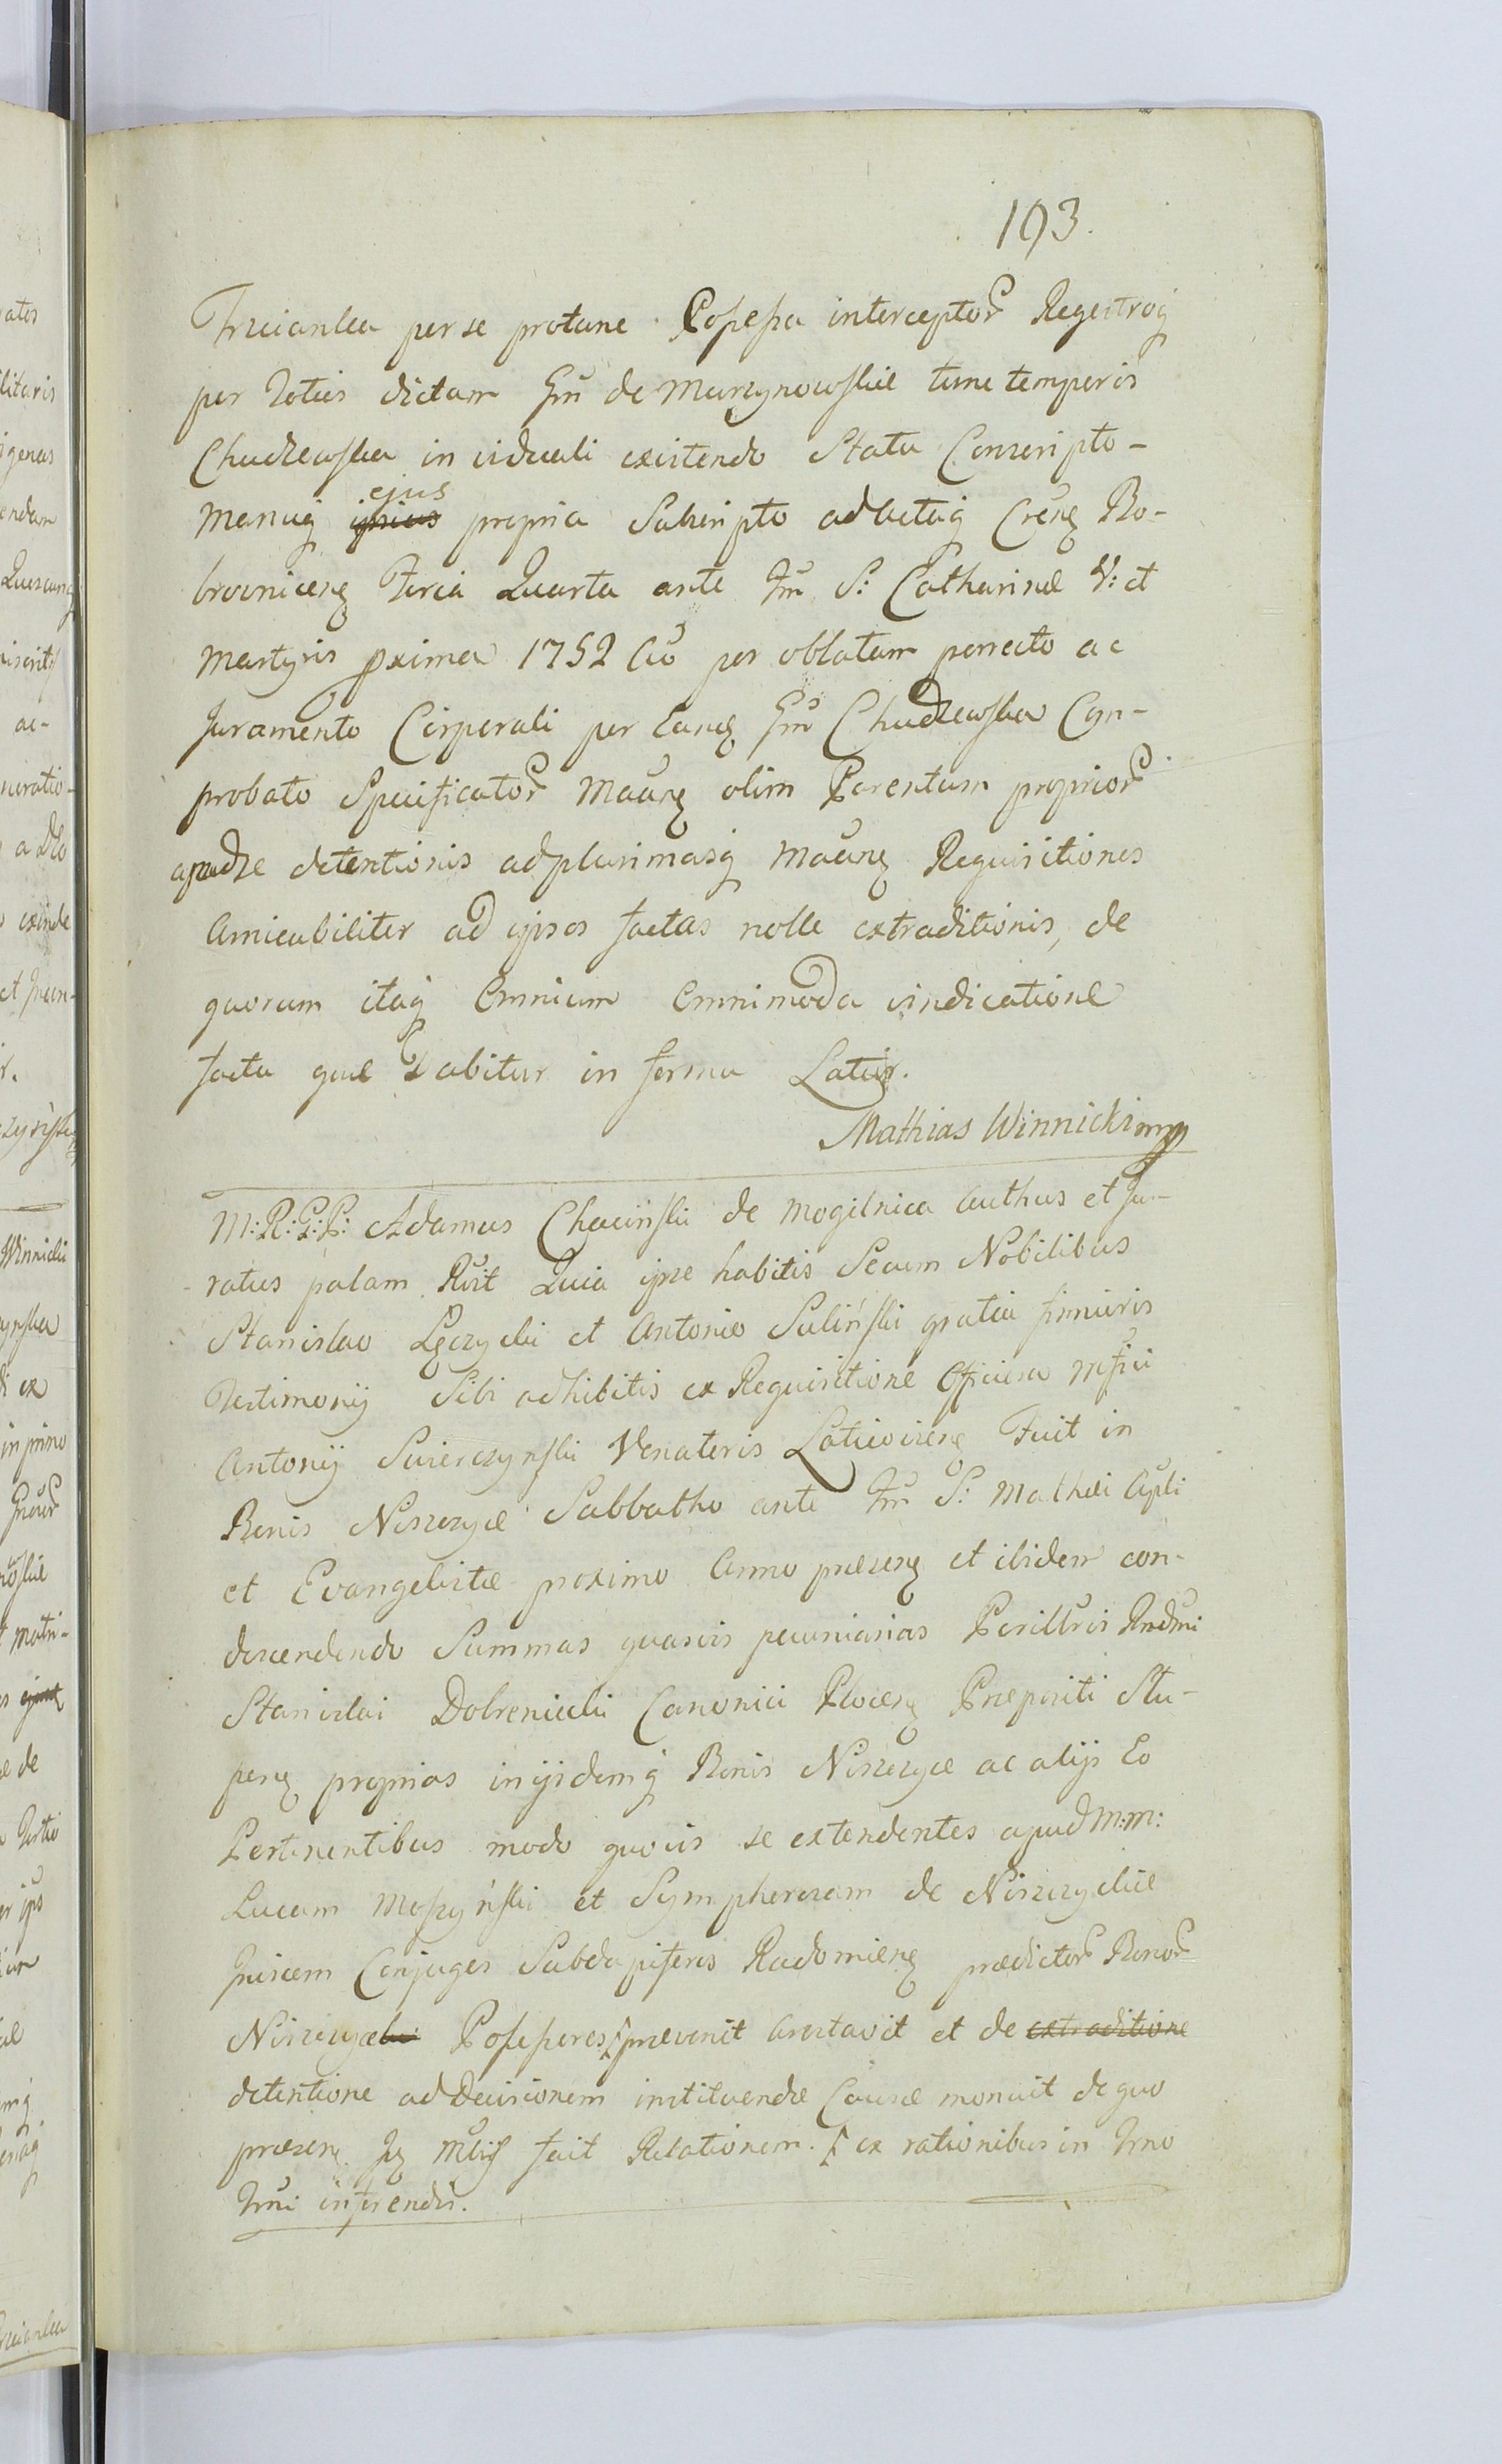 193.
Trzcianka per se protunc Possessa interceptor Regestroq
per Toties dictam Gm de Murzynowskie tunc temporis
Chudzewska in viduali existendo Statu Conscripto-
Manuq ipsius ejus propria Subscripto ad Actaq Bo-
brovnicen Feria Quarta ante Fm S: Catharinæ V: et
Martyris pxima 1752 Ao per oblatam porrecto ac
Juramento Corporali per Eanq Gm Chudzewska Com-
probato Specificator Maurq olim Parentum proprior
apud se detentionis ad plurimasq Maurq Requisitiones
Amicabiliter ad ipsos factas nolle extraditionis, de
quorum itaq Omnium Omnimoda vindicatione
facta quæ Dabitur in forma Latior.
Mathias Winnicki mp
M: R: G: P: Adamus Chaciński de Mogilnica Authus et Ju-
ratus palam Rvit Quia ipse habitis Secum Nobilibus
Stanislao Łęczycki et Antonio Suliński gratia firmioris
Testimonij Sibi adhibitis ex Requisitione Officiosa Mfici
Antonij Swierczynski Venatoris Laticovien Fuit in
Bonis Niszczyce Sabbatho ante Fm S: Mathæi Apli
et Evangelistæ proximo Anno præsen et ibidem con-
descendendo Summas quasvis pecuniarias Perillris Rndmi
Stanislai Dobreniecki Canonici Plocen Præpositi Slu-
pen proprias in ijsdemq Bonis Niszczyce ac alijs Eo
Pertinentibus modo quovis se extendentes apud M:M:
Lucam Moszyński et Symphorosam de Niszczyckie
Invicem Conjuges Subdapiferos Radomien prædictor Bonor
Niszczyce Possessores prævenit Arestavit et de extraditione
detentione ad Decisionem instituendæ Causæ monuit de quo
præsen fecit Relationem. ex rationibus in Trno
Trmi inferendis.